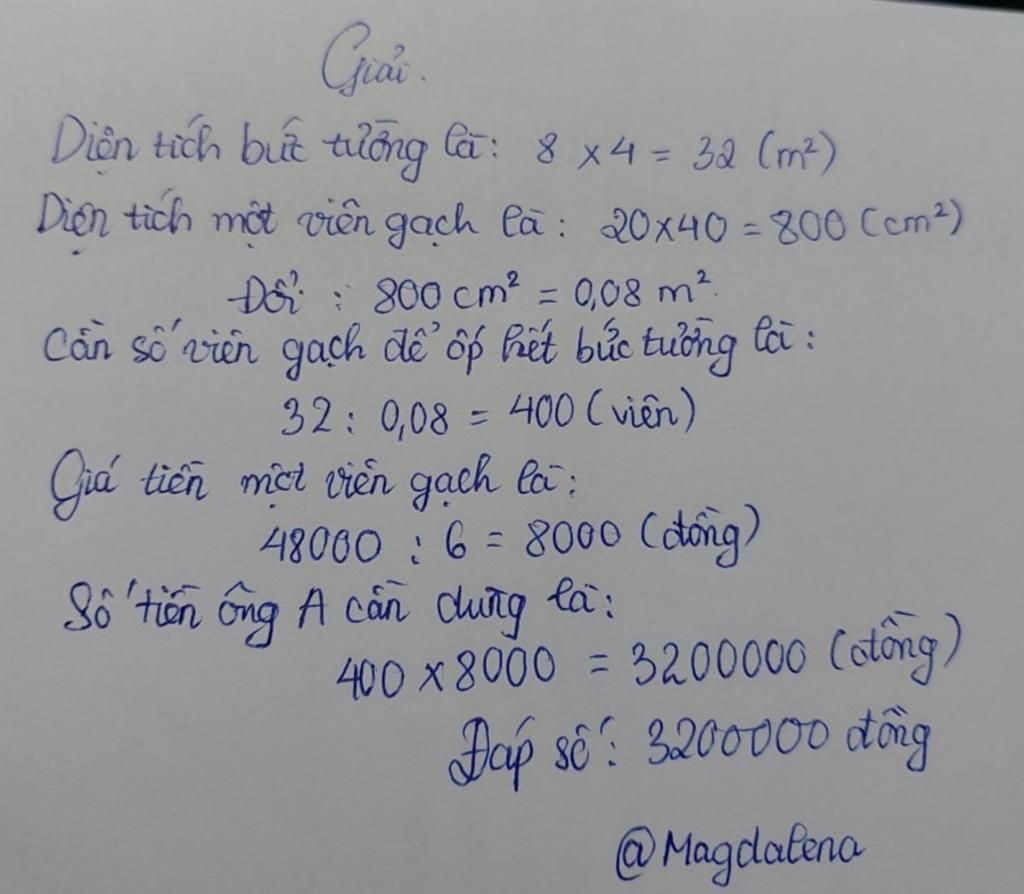 Giải.
Diện tích bức tường là: 8 x 4 = 32 (m²)
Diện tích một viên gạch là: 20x40 = 800 (cm²)
Đổi: 800 cm² = 0,08 m².
Cần số viên gạch để ốp hết bức tường là:
32 : 0,08 = 400 (viên)
Giá tiền một viên gạch là:
48000 : 6 = 8000 (đồng)
Số tiền ông A cần dùng là:
400 x 8000 = 3200000 (đồng)
Đáp số: 3200000 đồng
@Magdalena